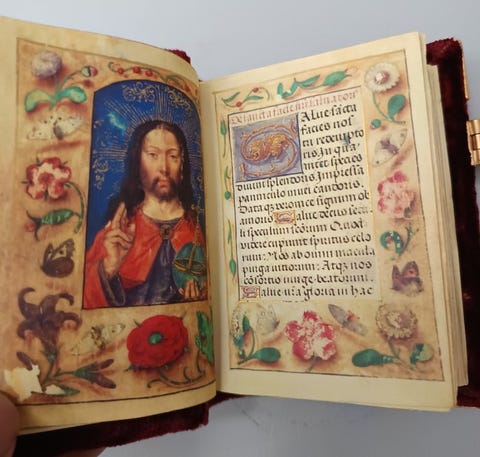 De sancta facie salvatoris
Salue sancta
facies nost
ri redempto
ris. In qua
nitet species
Diuini splendoris. Impressa
panniculo niuei candoris
Dataqz veronice signum ob
amoris Salue decus secu
li speculum scorum. Quod
videre cupiunt spiritus celo
rum: Nos ab omni macula
purga vitiorum: Atqz nos
cosortio iunge beatorum:
Salue nra gloria in hac